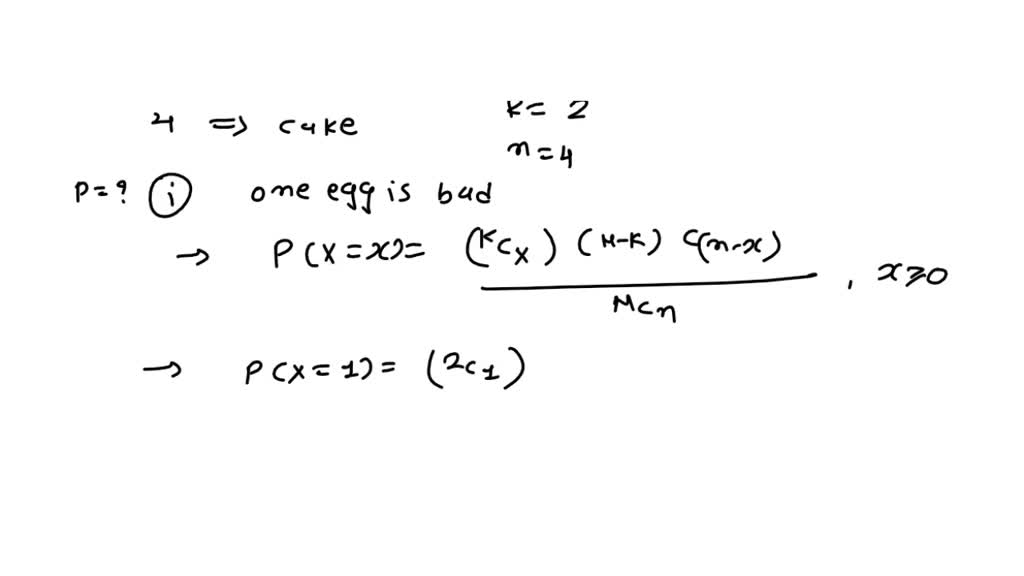 4 => cake K = 2
n = 4
P = ? (i) one egg is bad
→ P(X = x) = (KCx) (M-K) C(n-x)
MCn , x ≥ 0
→ P(X = 1) = (2C1)